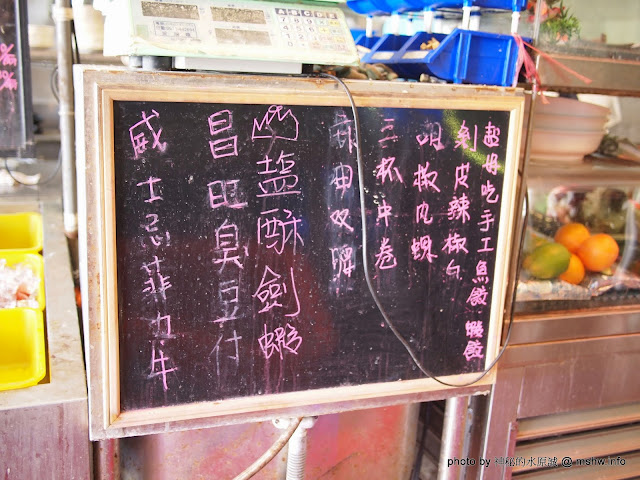 超好吃手工魚餃 蝦餃
剝皮辣椒臼
咀椒肉螺
三杯中卷
麻油双腰
鹽酥劍蝦
昌旺臭豆付
威士忌菲力牛
photo by 神秘的水原誠 @ mshw.info